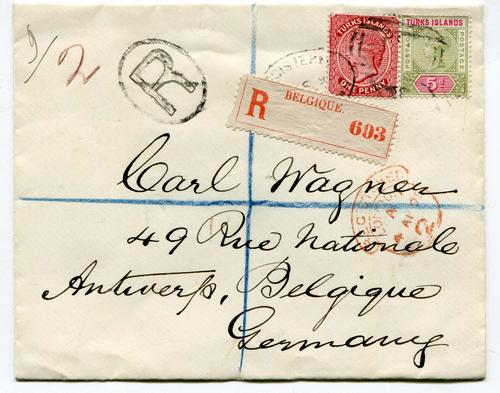 9/2
R
TURKS ISLANDS
ONE PENNY
TURKS ISLANDS
POSTAGE
POSTAGE
5d
R BELGIQUE. 603
Carl Wagner
49 Rue Nationale
Antwerp, Belgique
Germany